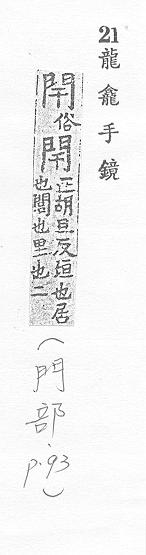 21 龍龕手鏡
俗閈正胡旦反垣也居
也閭也里也二
(門部, p.93)